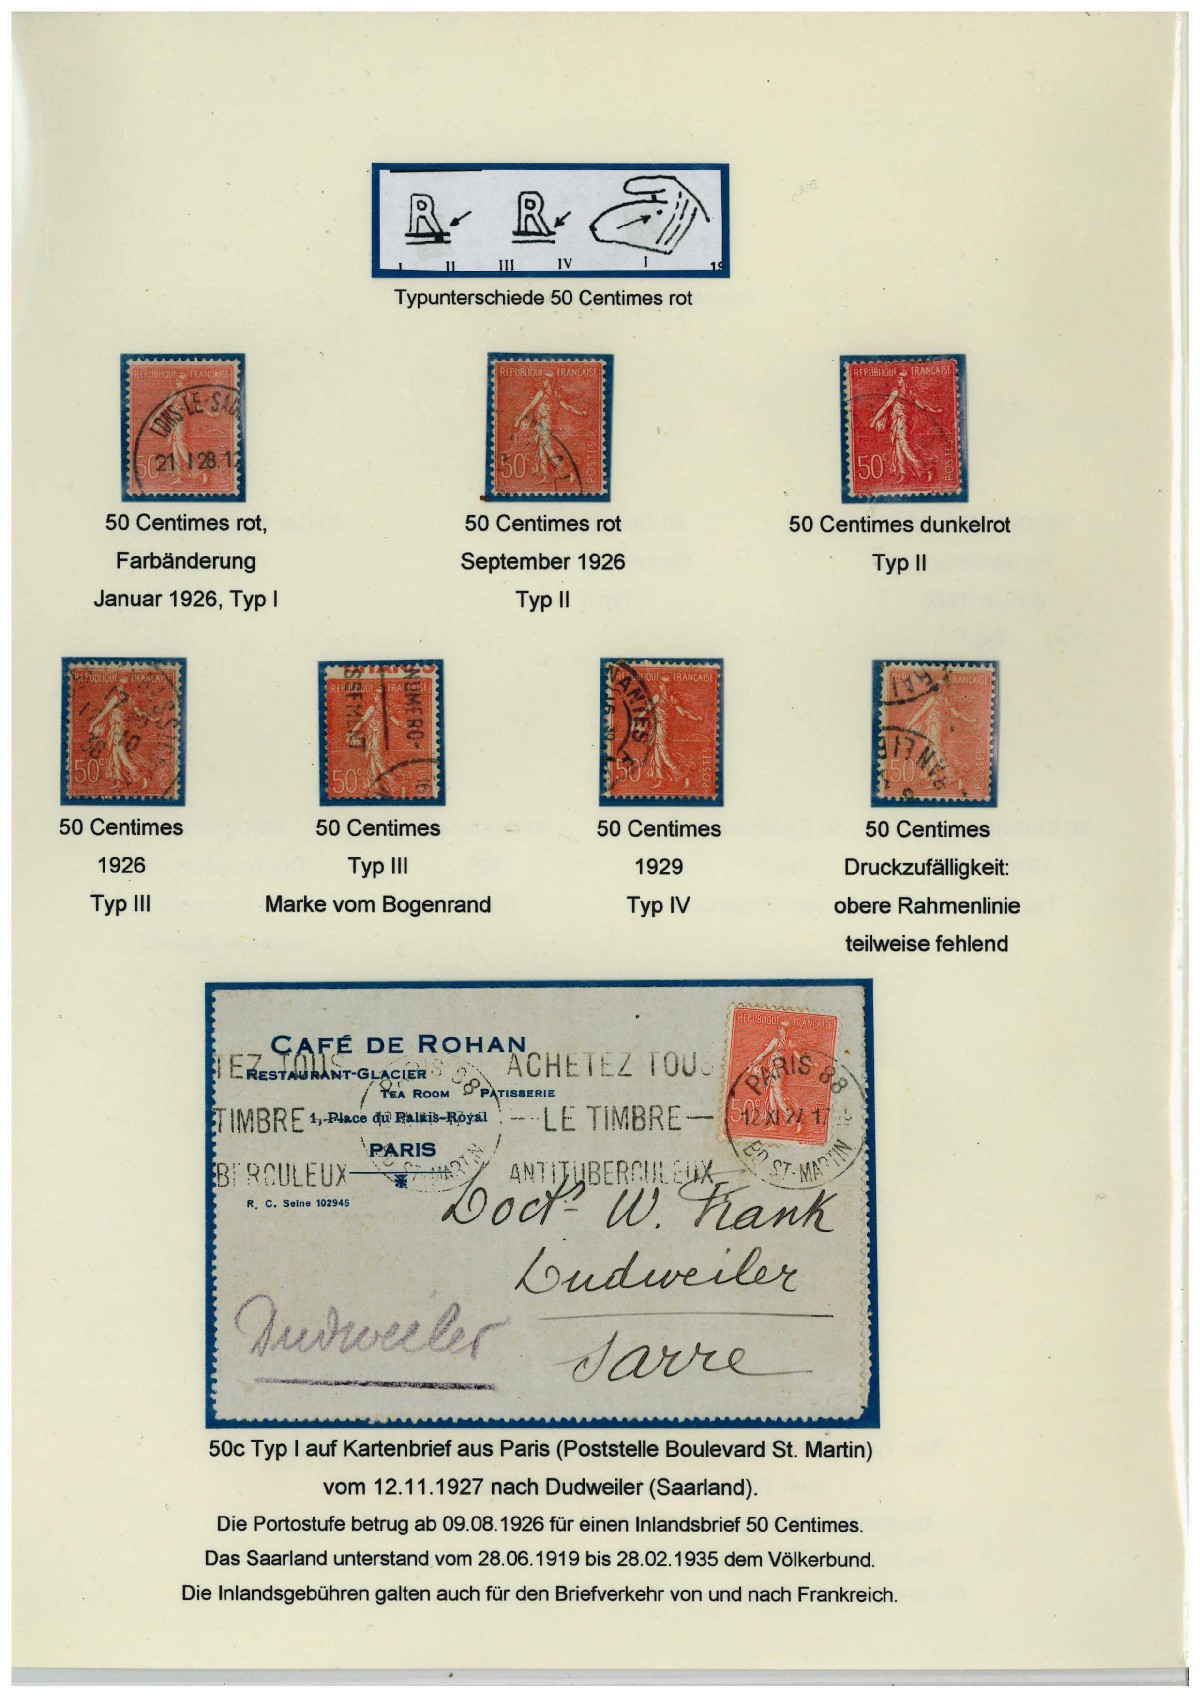 R R
I II III IV I 19
Typunterschiede 50 Centimes rot
REPUBLIQUE FRANÇAISE
LONS-LE-SAU
21 I 28.12
50c POSTES
50 Centimes rot,
Farbänderung
Januar 1926, Typ I
REPUBLIQUE FRANÇAISE
50c POSTES
50 Centimes rot
September 1926
Typ II
REPUBLIQUE FRANÇAISE
50c POSTES
50 Centimes dunkelrot
Typ II
REPUBLIQUE FRANÇAISE
50c POSTES
50 Centimes
1926
Typ III
NUMERO-
SSEMENT
50c
50 Centimes
Typ III
Marke vom Bogenrand
NANTES
50c POSTES
50 Centimes
1929
Typ IV
REPUBLIQUE FRANÇAISE
50c POSTES
50 Centimes
Druckzufälligkeit:
obere Rahmenlinie
teilweise fehlend
CAFÉ DE ROHAN
RESTAURANT-GLACIER
TEA ROOM PATISSERIE
1, Place du Palais-Royal
PARIS
R. C. Seine 102945
TEZ TOUS
TIMBRE
BERCULEUX
PARIS 68
BD ST-MARTIN
ACHETEZ TOUS
— LE TIMBRE —
ANTITUBERCULEUX
REPUBLIQUE FRANÇAISE
50c
PARIS 88
12 XI 27 17
BD ST-MARTIN
Doctr W. Frank
Dudweiler
Sarre
Dudweiler
50c Typ I auf Kartenbrief aus Paris (Poststelle Boulevard St. Martin)
vom 12.11.1927 nach Dudweiler (Saarland).
Die Portostufe betrug ab 09.08.1926 für einen Inlandsbrief 50 Centimes.
Das Saarland unterstand vom 28.06.1919 bis 28.02.1935 dem Völkerbund.
Die Inlandsgebühren galten auch für den Briefverkehr von und nach Frankreich.